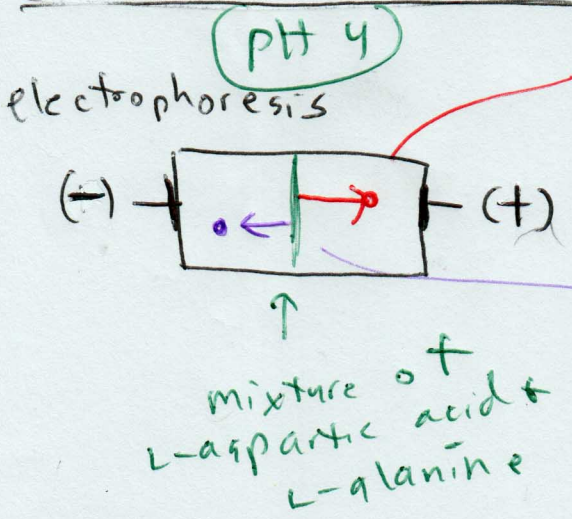 pH 4
electrophoresis
(-) (+)
mixture of
L-aspartic acid +
L-alanine